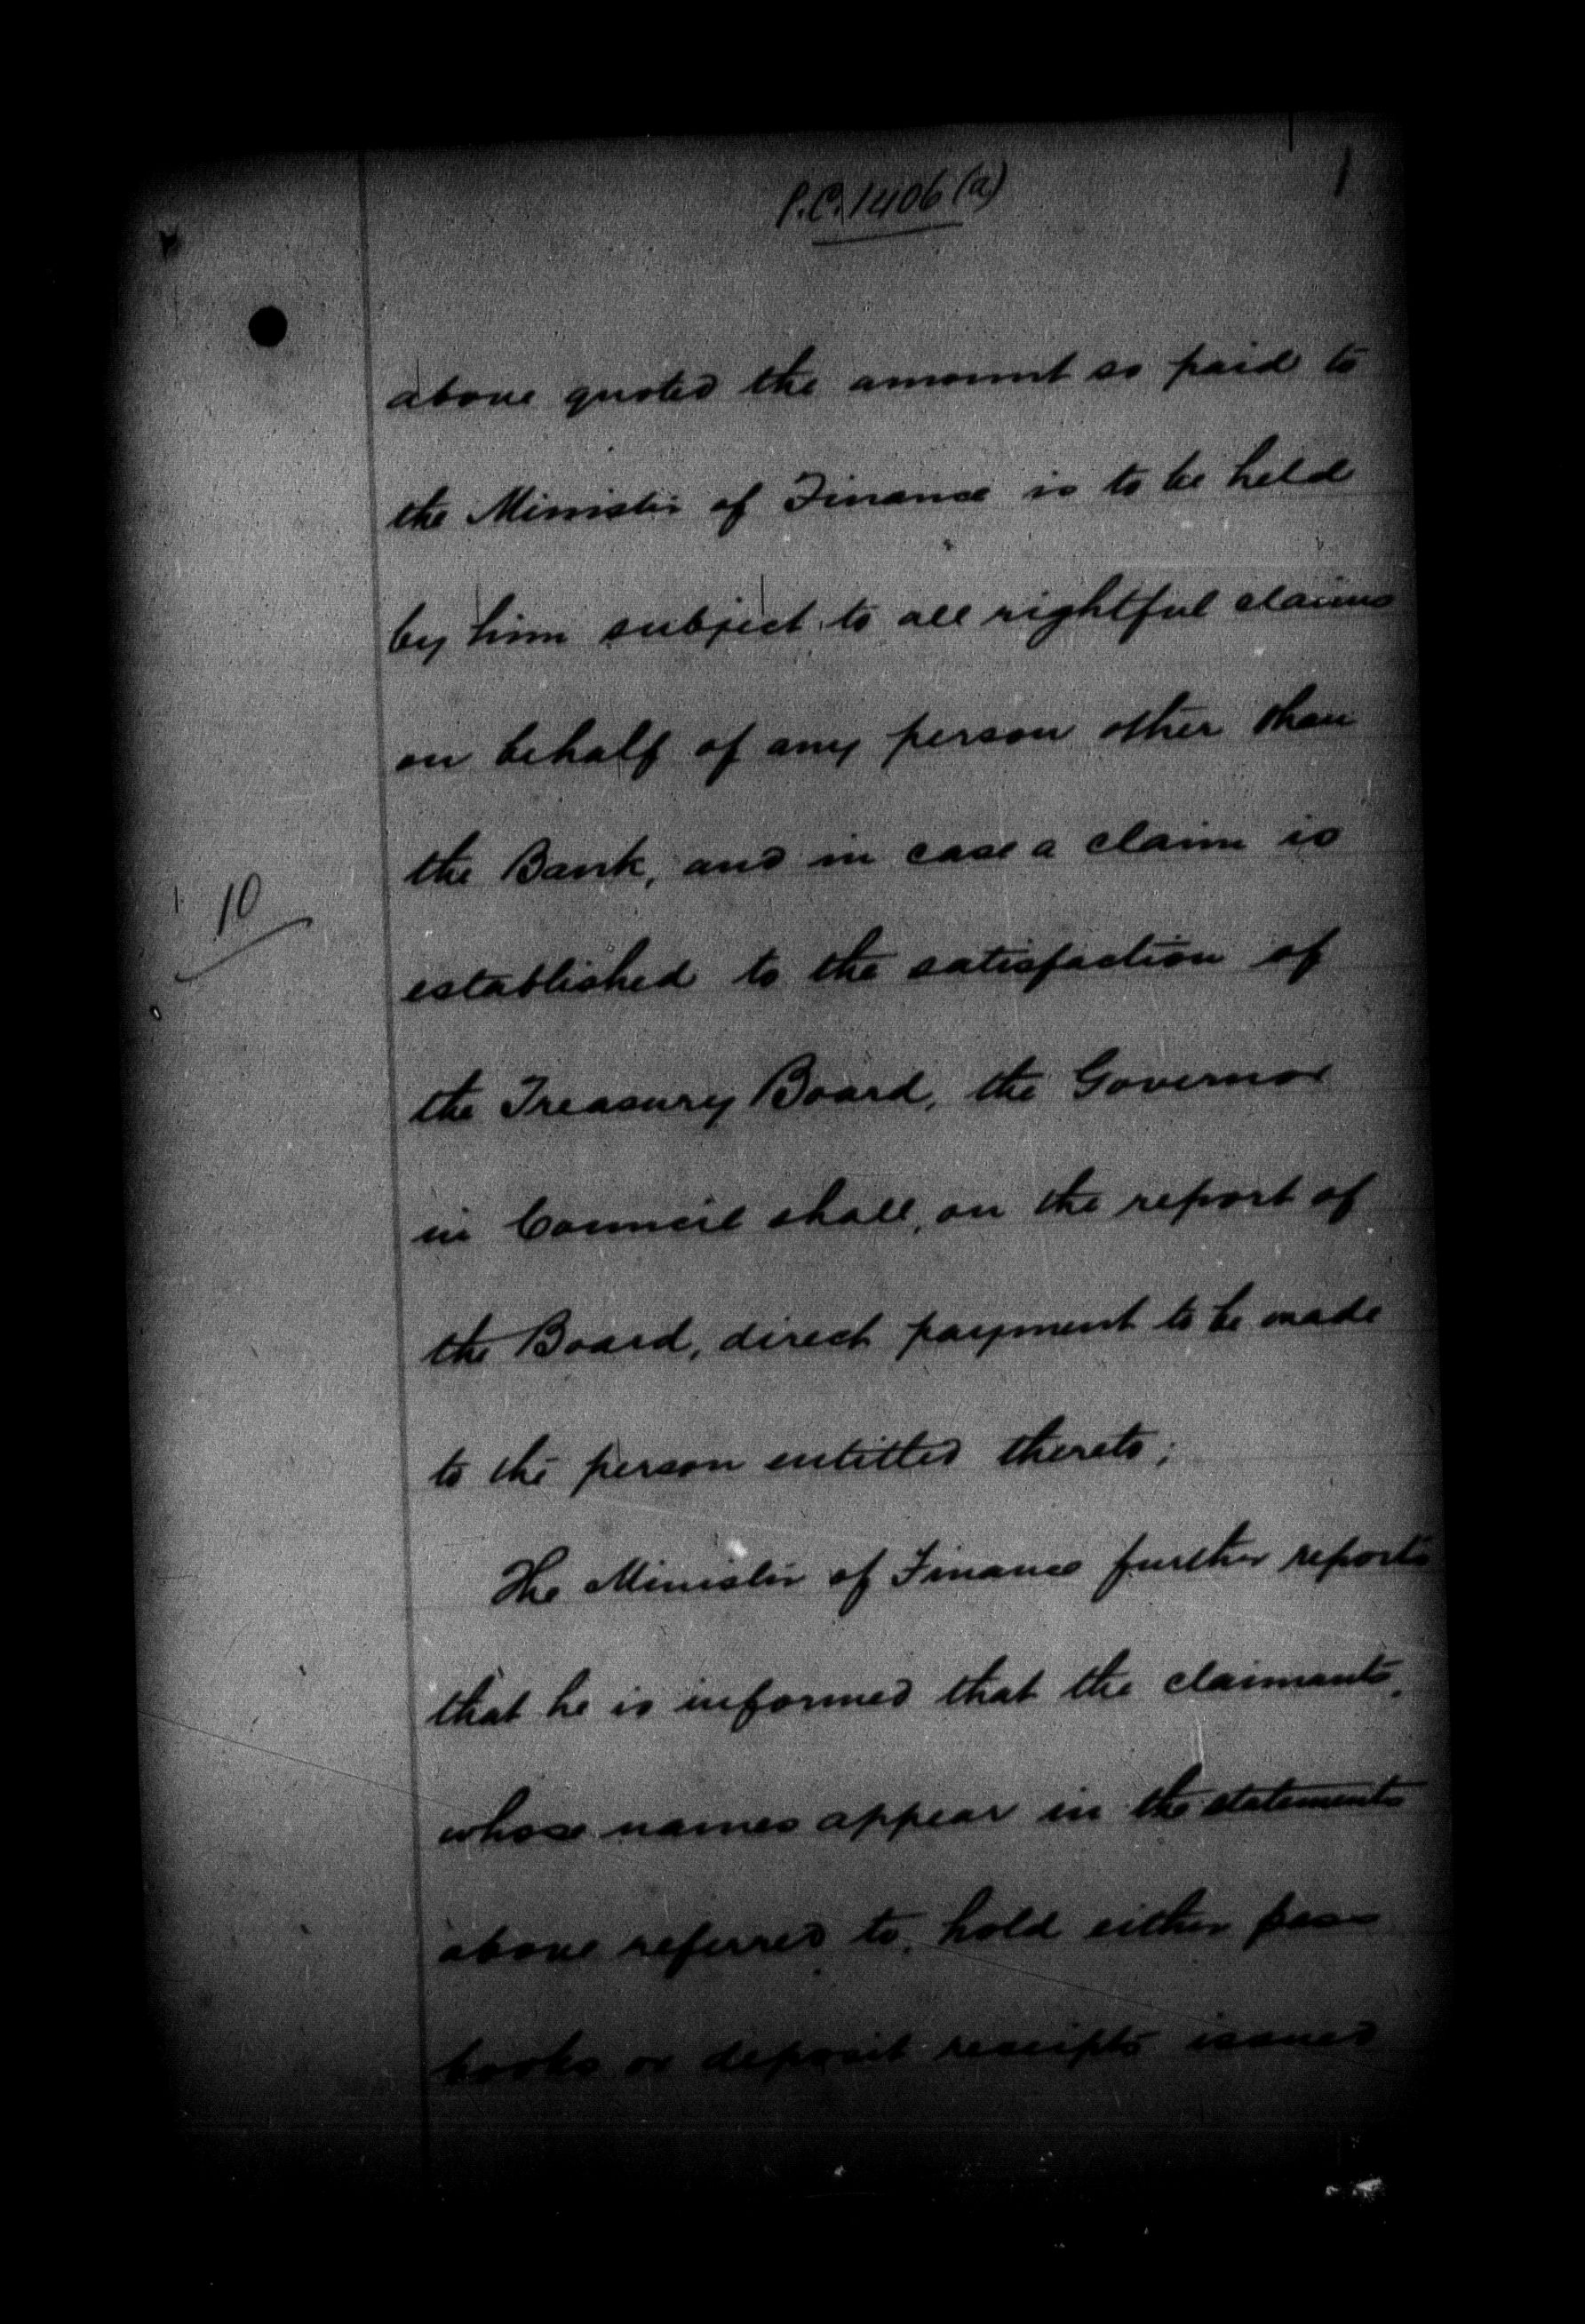 P.C. 1406 (a)
above quoted the amount so paid to
the Minister of Finance is to be held
by him subject to all rightful claims
on behalf of any person other than
the Bank, and in case a claim is
10
established to the satisfaction of
the Treasury Board, the Governor
in Council shall, on the report of
the Board, direct payment to be made
to the person entitled thereto;
The Minister of Finance further reports
that he is informed that the claimants,
whose names appear in the statements
above referred to, hold either pass
books or deposit receipts issued